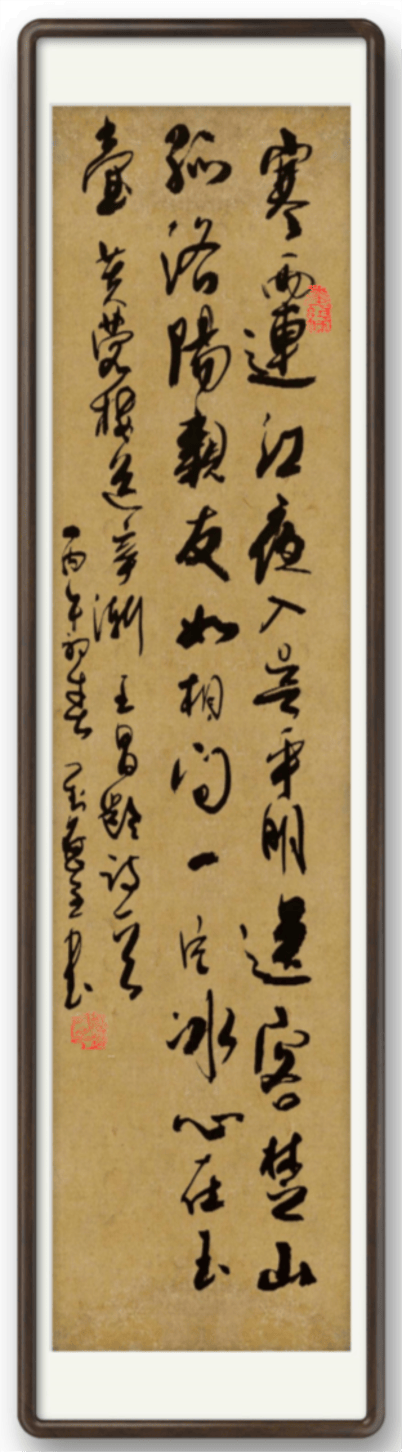 寒雨連江夜入吳平明送客楚山
孤洛陽親友如相问一片冰心在玉
壺 芙蓉楼送辛漸 王昌齡诗一首
丙午初春 書